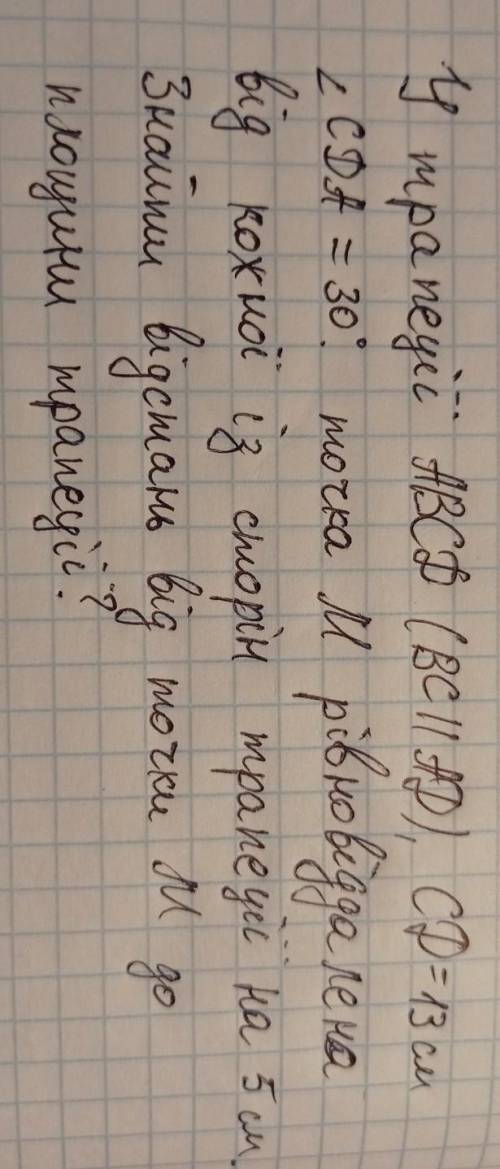 У трапеції ABCD (BC || AD), CD = 13 см
∠ CDA = 30°. точка М рівновіддалена
від кожної із сторін трапеції на 5 см.
Знайти відстань від точки М до
площини трапеції.?